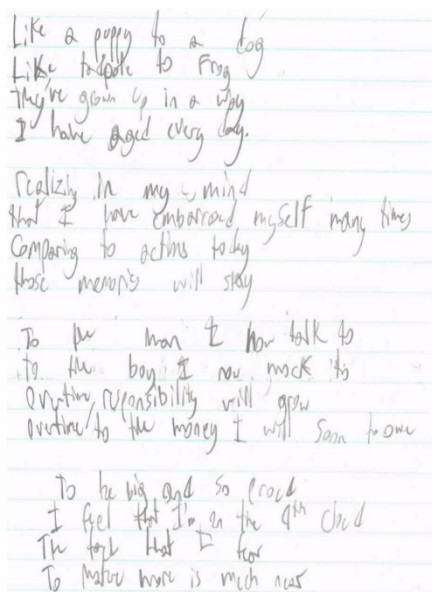 Like a puppy to a dog
Like tadpole to Frog
they've grown up in a way
I have aged every day.
realizing in my mind
that I have embarrased myself many times
Comparing to actions today
those memoris will stay
To the man I now talk to
to the boy I now mock
overtime, responsibility will grow
overtime to the money I will soon to owe
To be big and so proud
I feel that I'm on the 9th cloud
The that I fear
To mature more is much near